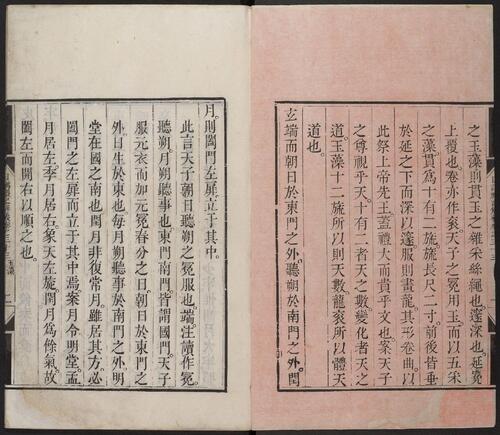 之玉藻則貫玉之雜采絲繩也邃深也延冕
上覆也卷亦作袞天子之冕用玉而以五采
之藻貫爲十有二旒旒長尺二寸前後皆垂
於延之下而深以邃服則畫龍其形卷曲以
此祭上帝先王蓋禮大而貴乎文也案天子
之尊視乎天十有二者天之數變化者天之
道玉藻十二旒所以則天數龍袞所以體天
道也
玄端而朝日於東門之外聽朔於南門之外閏
月則闔門左扉立于其中
此言天子朝日聽朔之冕服也端注讀作冕
聽朔月朔聽事也東門南門皆謂國門天子
服元衣而加元冕春分之日朝日於東門之
外日生於東也每月朔聽事於南門之外明
堂在國之南也閏月非復常月雖居其方必
闔門之左扉而立于其中焉案月令明堂孟
月居左季月居右象天左旋閏月爲餘氣故
闔左而開右以順之也